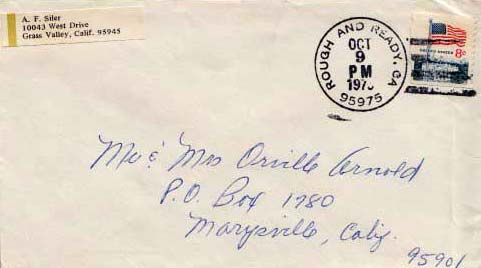 A. F. Siler
10043 West Drive
Grass Valley, Calif. 95945
ROUGH AND READY, CA
OCT
9
PM
95975
8c
Mr & Mrs Orville Arnold
P.O. Box 1780
Marysville, Calif.
95901